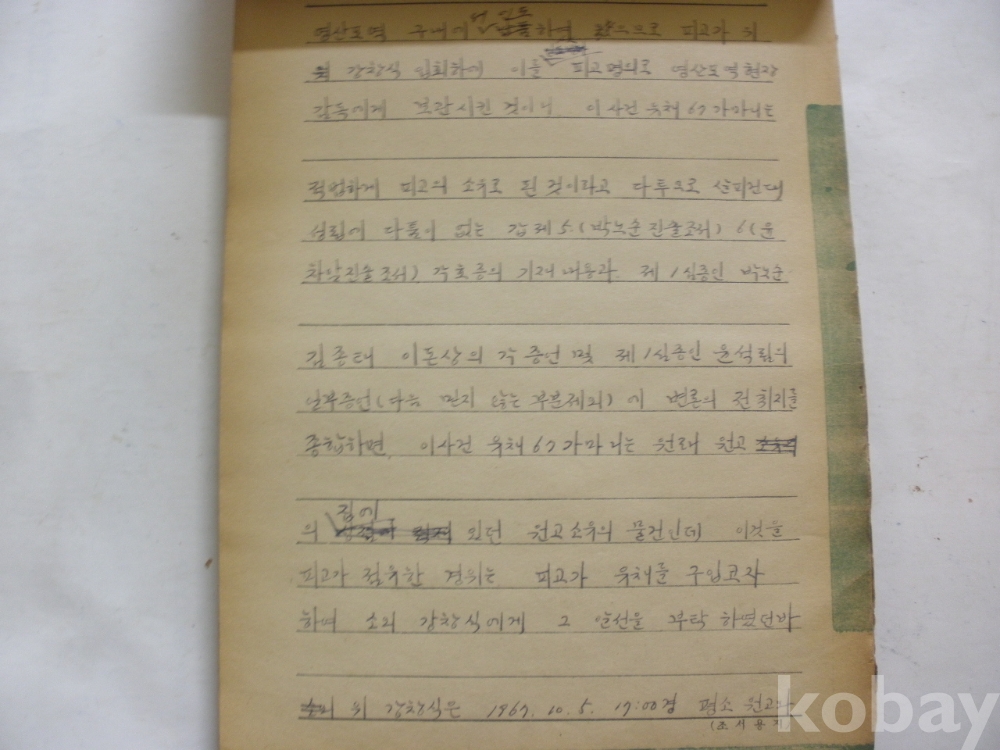 영산포역 구내에서 인도 하여 왔으므로 피고가 위
위 강창식 입회하에 이를 피고명의로 영산포역현장
감독에게 보관시킨 것이니 이사건 유채 67가마니는
적법하게 피고의 소유로 된 것이라고 다투으로 살피건대
성립에 다툼이 없는 갑제5(박노순진술조서) 6(윤
차암진술조서) 각호증의 기재내용과 제1심증인 박노순
김종태 이돈상의 각 증언 및 제1심증인 윤석림의
일부증언(다음 믿지 않는 부분제외)에 변론의 전취지를
종합하면, 이사건 유채 67가마니는 원래 원고
의 집에 있던 원고소유의 물건인데 이것을
피고가 점유한 경위는 피고가 유채를 구입코자
하여 소외 강창식에게 그 알선을 부탁 하였던바
위 강창식은 1967. 10. 5. 17:00경 평소 원고
(조서용지
kobay